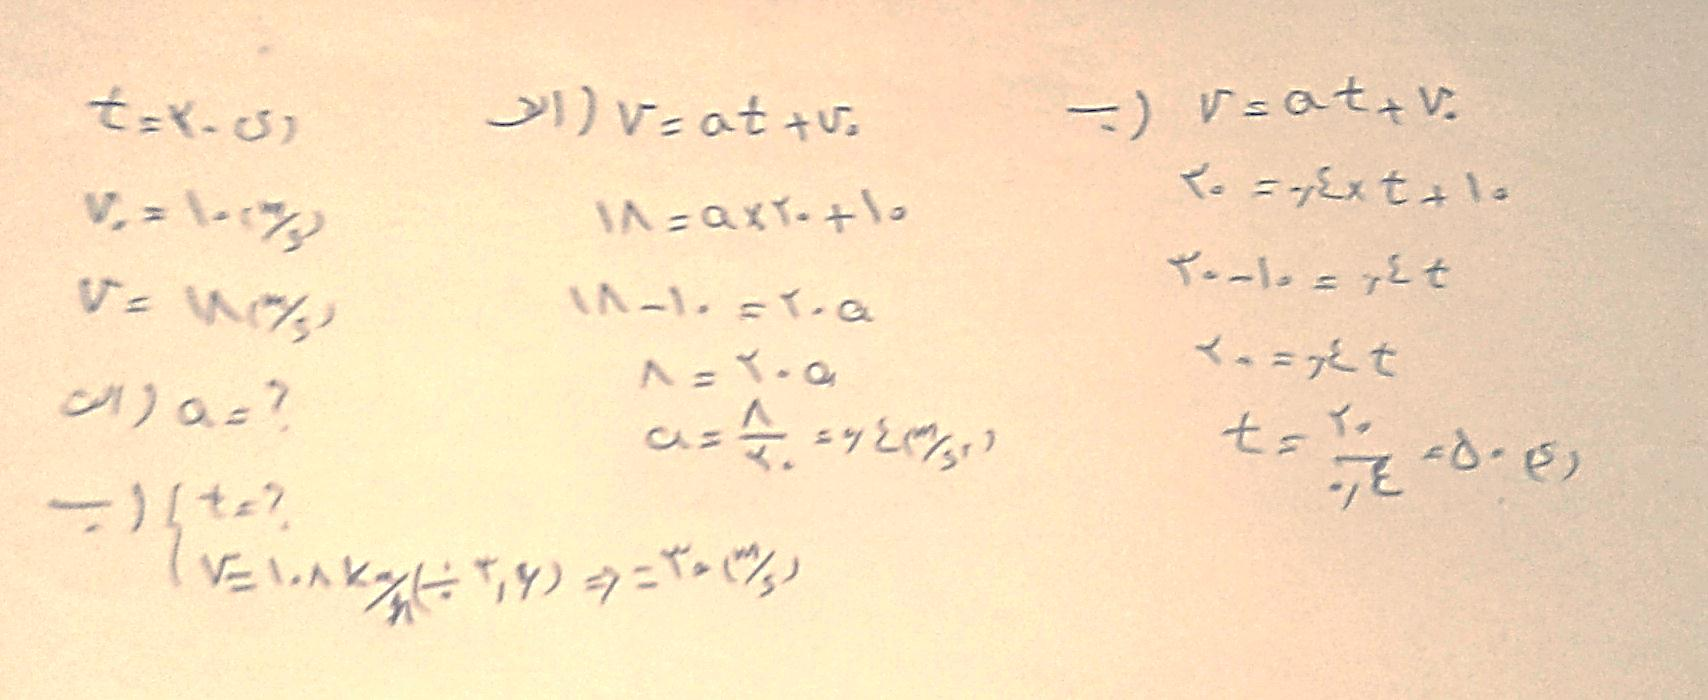 t = ۲۰ (s)
v₀ = ۱۰ (m/s)
v = ۱۸ (m/s)
الف) a = ?
ب) { t = ?
v = ۱۰۸ km/h (÷ ۳,۶) ⇒ = ۳۰ (m/s)
الف) v = at + v₀
۱۸ = a × ۲۰ + ۱۰
۱۸ - ۱۰ = ۲۰a
۸ = ۲۰a
a = ۸/۲۰ = ۰,۴ (m/s²)
ب) v = at + v₀
۳۰ = ۰,۴ × t + ۱۰
۳۰ - ۱۰ = ۰,۴ t
۲۰ = ۰,۴ t
t = ۲۰/۰,۴ = ۵۰ (s)